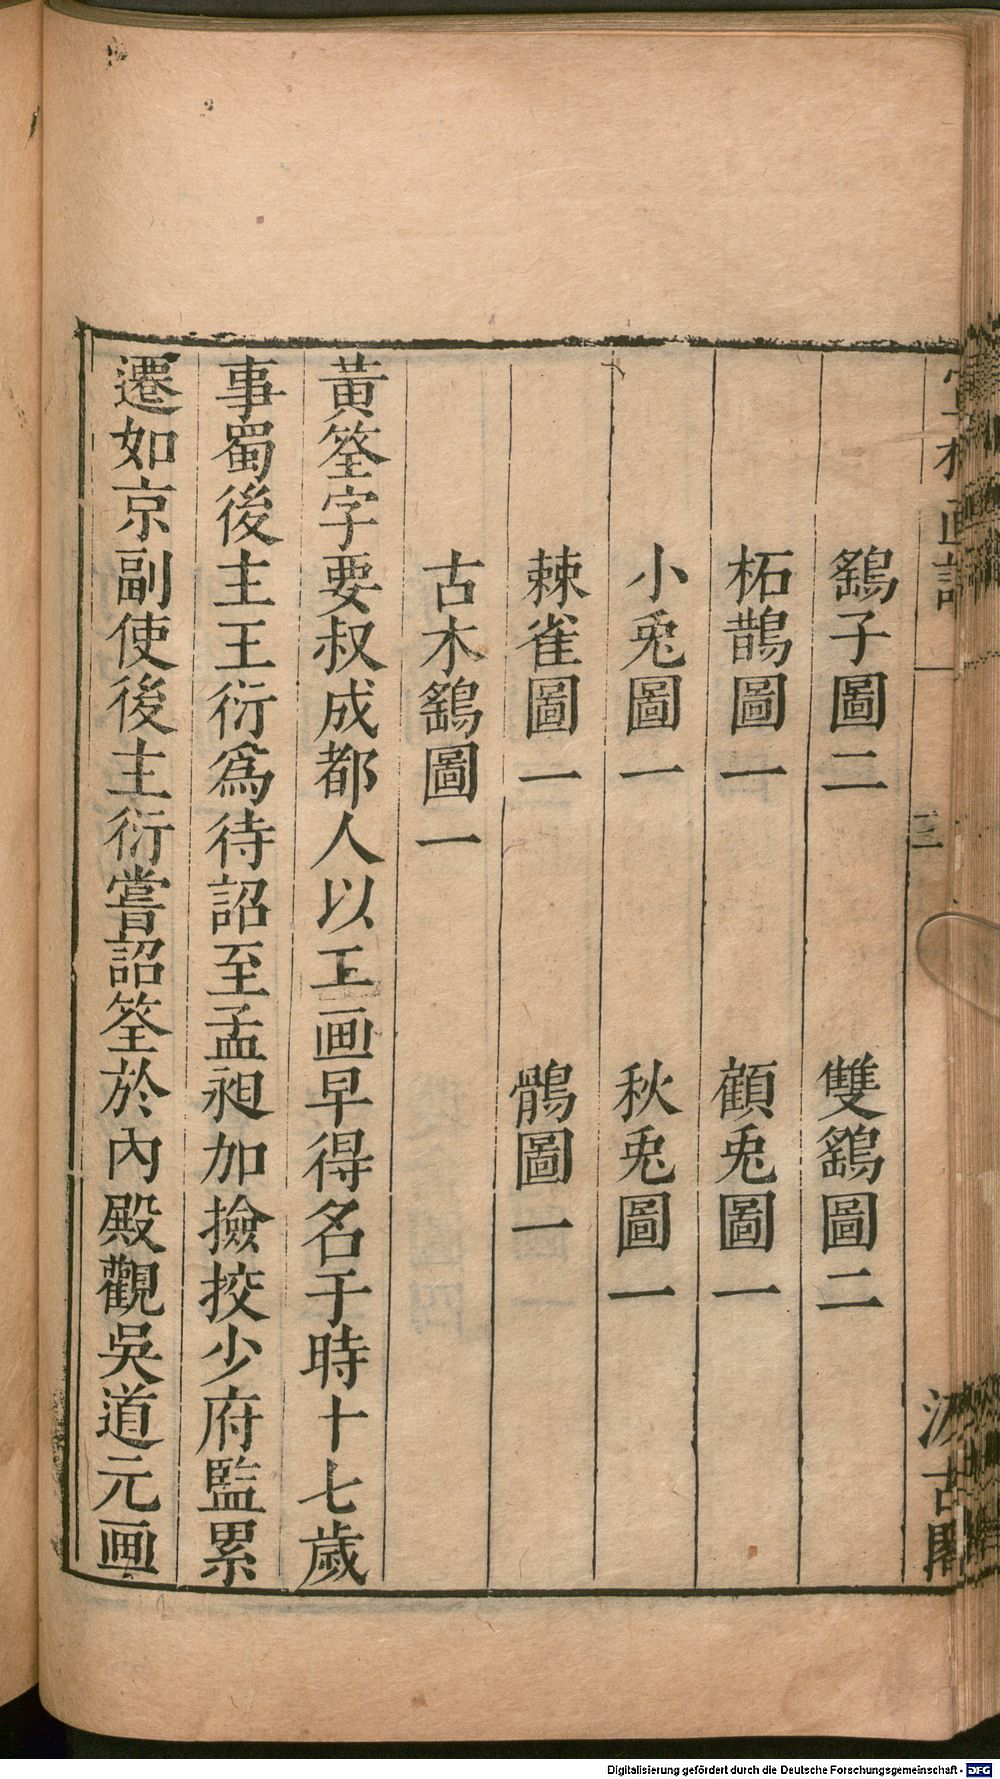 宣和画譜 三 汲古閣
鷂子圖二 雙鷂圖二
柘鵲圖一 顧兎圖一
小兎圖一 秋兎圖一
棘雀圖一 鶻圖一
古木鷂圖一
黃筌字要叔成都人以工画早得名于時十七歲
事蜀後主王衍爲待詔至孟昶加撿挍少府監累
遷如京副使後主衍嘗詔筌於內殿觀吳道元画
Digitalisierung gefördert durch die Deutsche Forschungsgemeinschaft - DFG